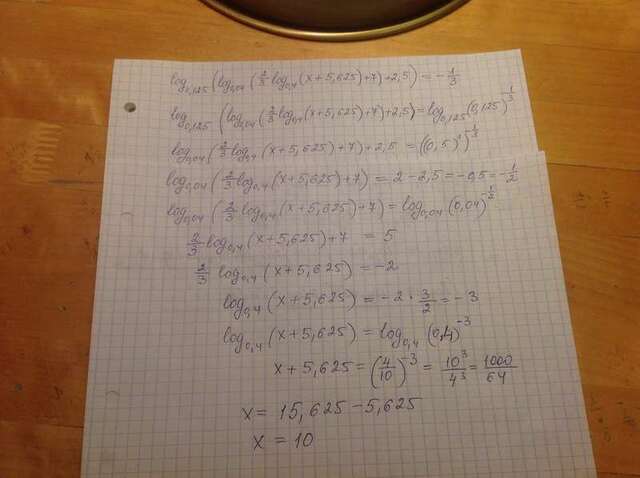 log₀,₁₂₅(log₀,₀₄(2/3 log₀,₄(x+5,625)+7)+2,5) = -1/3
log₀,₁₂₅(log₀,₀₄(2/3 log₀,₄(x+5,625)+7)+2,5) = log₀,₁₂₅(0,125)^(-1/3)
log₀,₀₄(2/3 log₀,₄(x+5,625)+7)+2,5 = ((0,5)³)^(-1/3)
log₀,₀₄(2/3 log₀,₄(x+5,625)+7) = 2-2,5 = -0,5 = -1/2
log₀,₀₄(2/3 log₀,₄(x+5,625)+7) = log₀,₀₄(0,04)^(-1/2)
2/3 log₀,₄(x+5,625)+7 = 5
2/3 log₀,₄(x+5,625) = -2
log₀,₄(x+5,625) = -2·3/2 = -3
log₀,₄(x+5,625) = log₀,₄(0,4)^(-3)
x+5,625 = (4/10)^(-3) = 10³/4³ = 1000/64
x = 15,625-5,625
x = 10